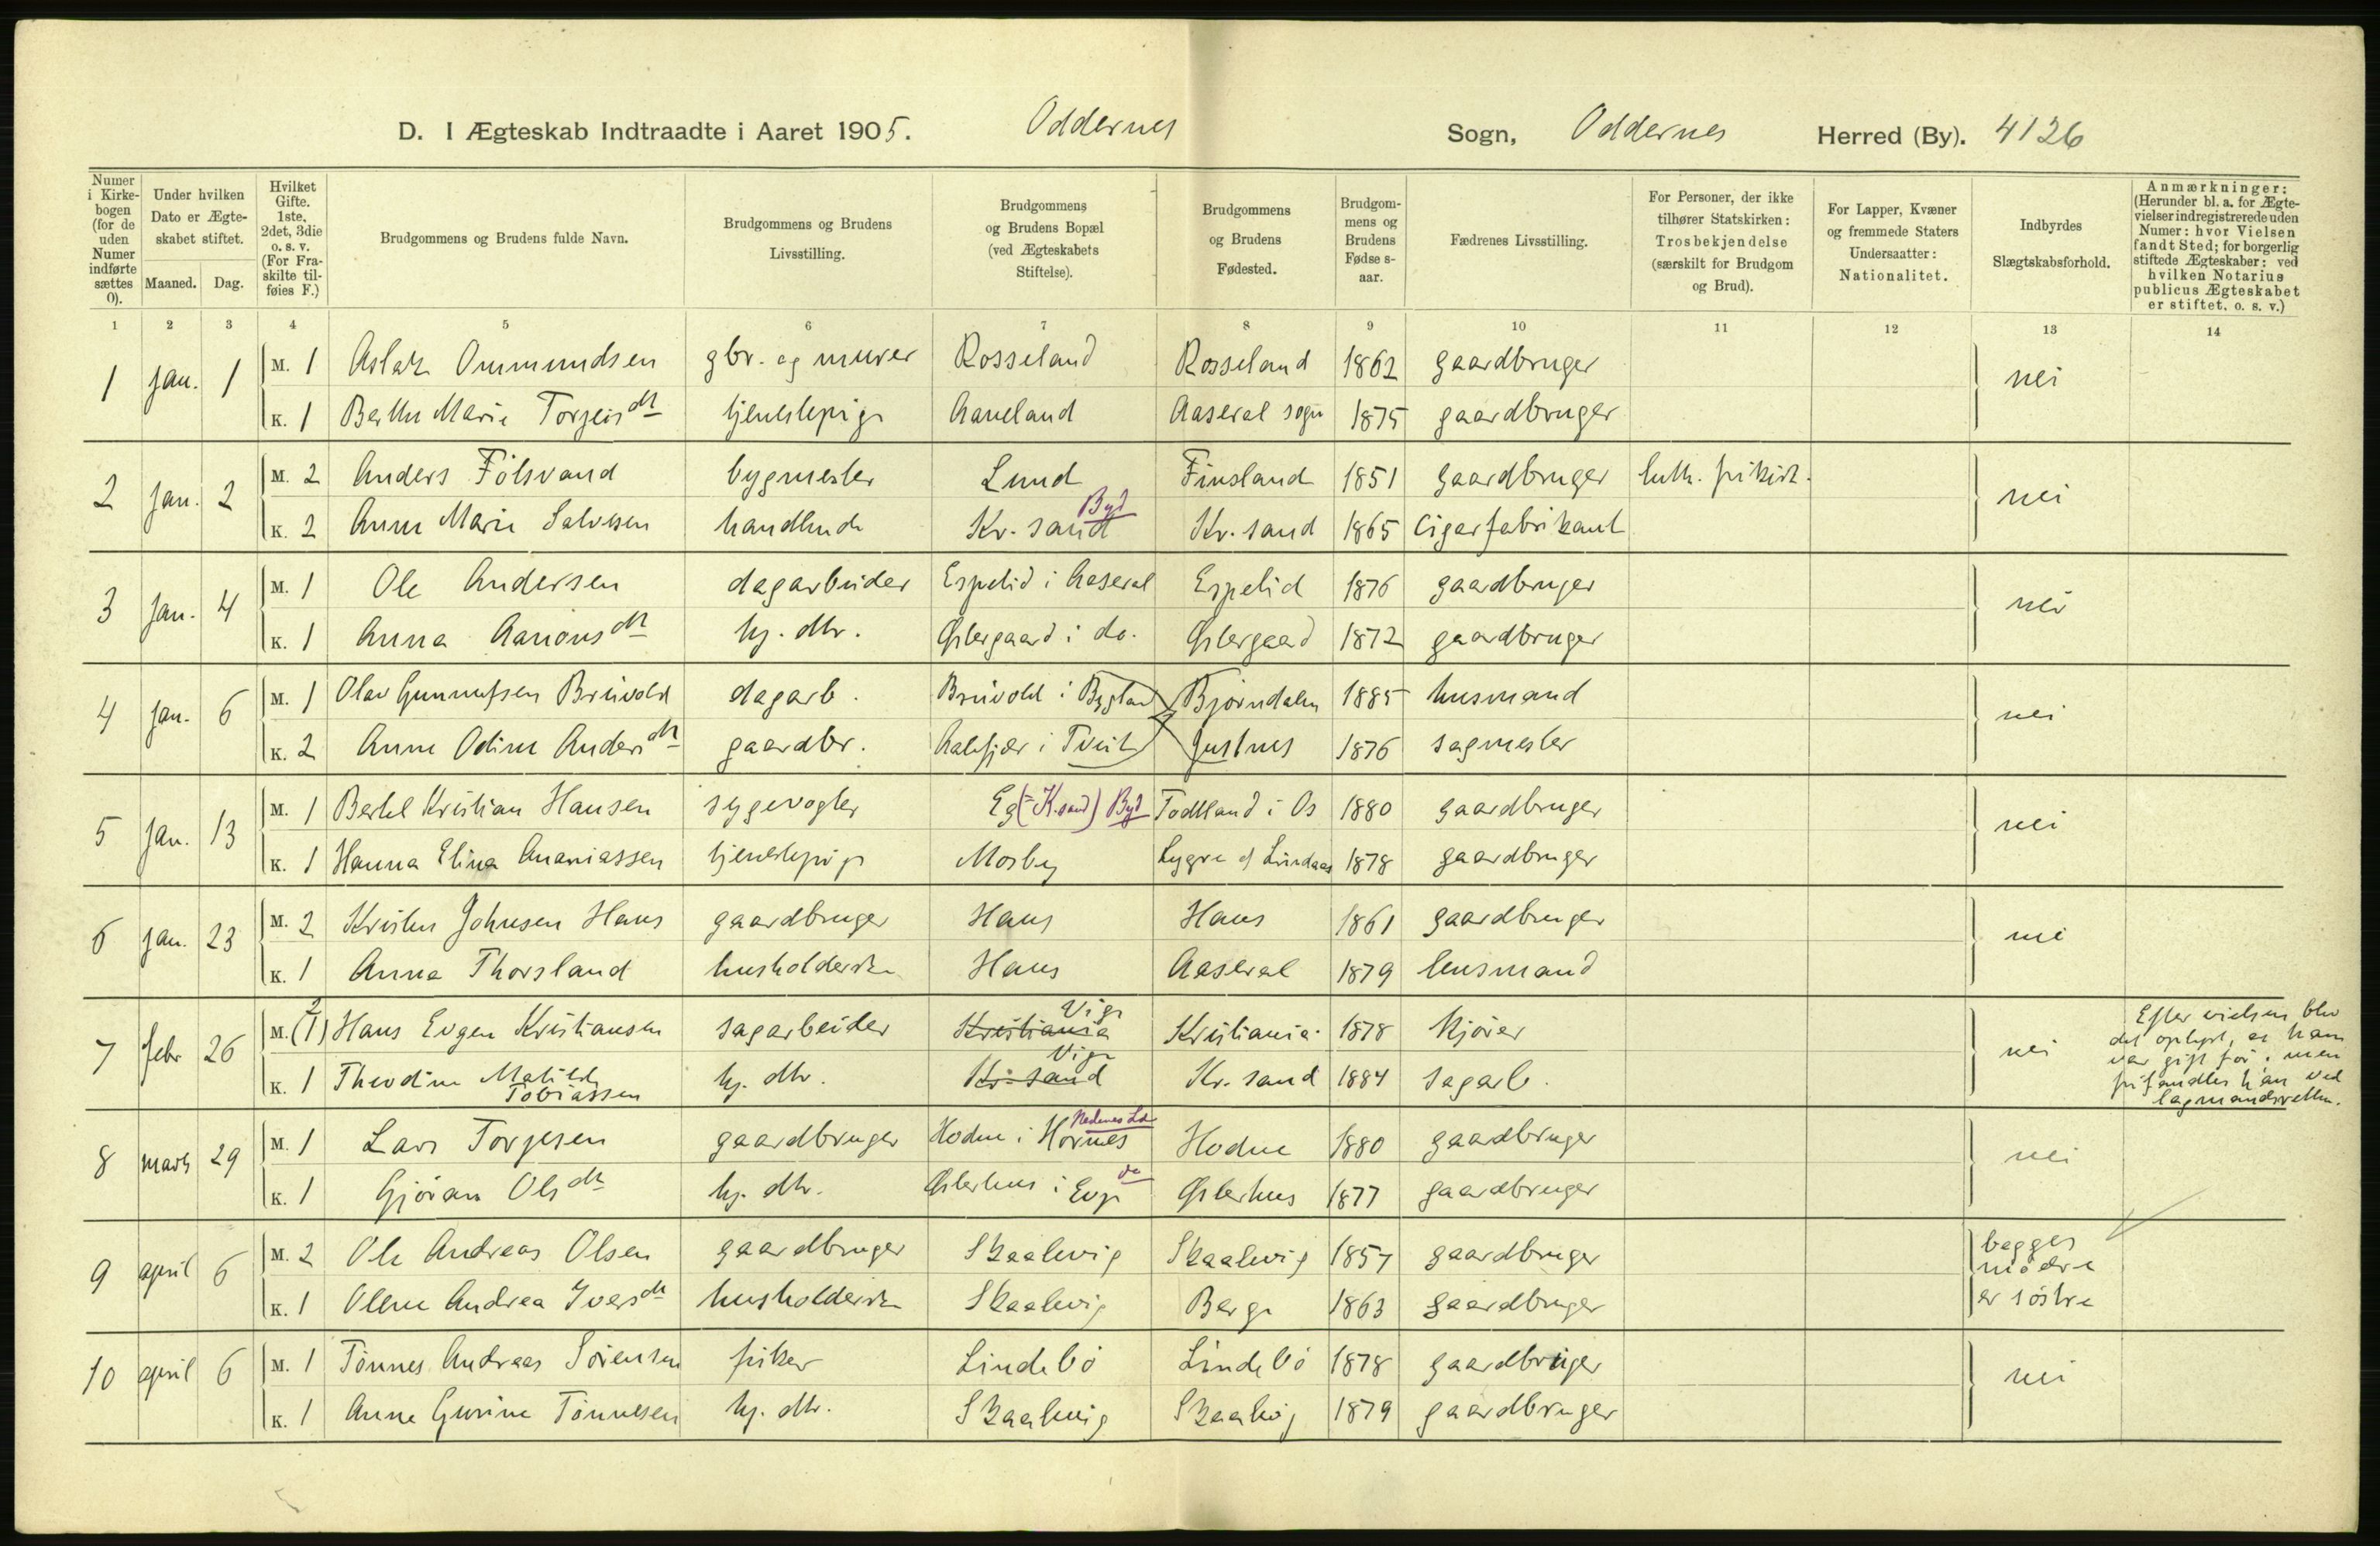 D. I Ægteskab Indtraadte i Aaret 1905. Oddernes Sogn, Oddernes Herred (By). 4126
Numer i Kirkebogen (for de uden Numer indførte sættes 0).
Under hvilken Dato er Ægteskabet stiftet.
Maaned. Dag.
Hvilket Gifte. 1ste, 2det, 3die o. s. v. (For Fraskilte tilføies F.)
Brudgommens og Brudens fulde Navn.
Brudgommens og Brudens Livsstilling.
Brudgommens og Brudens Bopæl (ved Ægteskabets Stiftelse).
Brudgommens og Brudens Fødested.
Brudgommens og Brudens Fødselsaar.
Fædrenes Livsstilling.
For Personer, der ikke tilhører Statskirken: Trosbekjendelse (særskilt for Brudgom og Brud).
For Lapper, Kvæner og fremmede Staters Undersaatter: Nationalitet.
Indbyrdes Slægtskabsforhold.
Anmærkninger: (Herunder bl. a. for Ægtevielser indregistrerede uden Numer: hvor Vielsen fandt Sted; for borgerlig stiftede Ægteskaber: ved hvilken Notarius publicus Ægteskabet er stiftet, o. s. v.)
1 2 3 4 5 6 7 8 9 10 11 12 13 14
1 jan. 1 M. 1 Aslak Ommundsen gbr. og murer Rosseland Rosseland 1862 gaardbruger nei
K. 1 Berthe Marie Torgeisdtr tjenestepige Aaneland Aaseral sogn 1875 gaardbruger
2 jan. 2 M. 2 Anders Fölsvand bygmester Lund Finsland 1851 gaardbruger luth. frikirk. nei
K. 2 Anne Marie Salvesen handlende Kr. sand Byd Kr. sand 1865 Cigarfabrikant
3 jan. 4 M. 1 Ole Andersen dagarbeider Espelid i Aaseral Espelid 1876 gaardbruger nei
K. 1 Anna Aanonsdtr hj. dtr. Østergaard i do. Østergaard 1872 gaardbruger
4 jan. 6 M. 1 Olav Gunnufsen Breivold dagarb. Breivold i Bygland Bjorndalen 1885 husmand nei
K. 2 Anne Odine Andersdtr gaardbr. Aalefjær i Tveit Justnes 1876 sagmester
5 jan. 13 M. 1 Bertel Kristian Hansen sygevogter Eg (= K.sand) Byd Todtland i Os 1880 gaardbruger nei
K. 1 Hanna Elina Ananiassen tjenestepige Mosby Lygre af Lindaas 1878 gaardbruger
6 jan. 23 M. 2 Kristen Johnsen Haus gaardbruger Haus Haus 1861 gaardbruger nei
K. 1 Anna Thorsland husholderske Haus Aaseral 1879 lensmand
7 febr 26 M. (1) 2 Hans Evgen Kristiansen sagarbeider Kristiania Vige Kristiania. 1878 kjører nei Efter vielsen blev det oplyst, at han var gift før, men frifandtes han ved lagmandsretten.
K. 1 Theodine Matilde Tobiassen hj. dtr. Kr. sand Vige Kr. sand 1884 sagarb.
8 marts 29 M. 1 Lars Torjesen gaardbruger Hodne i Hornes Nedenes Hodne 1880 gaardbruger nei
K. 1 Gjøran Olsdtr hj. dtr. Østerhus i Evje do Østerhus 1877 gaardbruger
9 april 6 M. 2 Ole Andreas Olsen gaardbruger Skaalevig Skaalevig 1857 gaardbruger begges mødre er søstre
K. 1 Olene Andrea Iversdtr husholderske Skaalevig Berge 1863 gaardbruger
10 april 6 M. 1 Tönnes Andreas Sörensen fisker Lindebö Lindebö 1878 gaardbruger nei
K. 1 Anne Gurine Tönnesen hj. dtr. Skaalevig Skaalevig 1879 gaardbruger